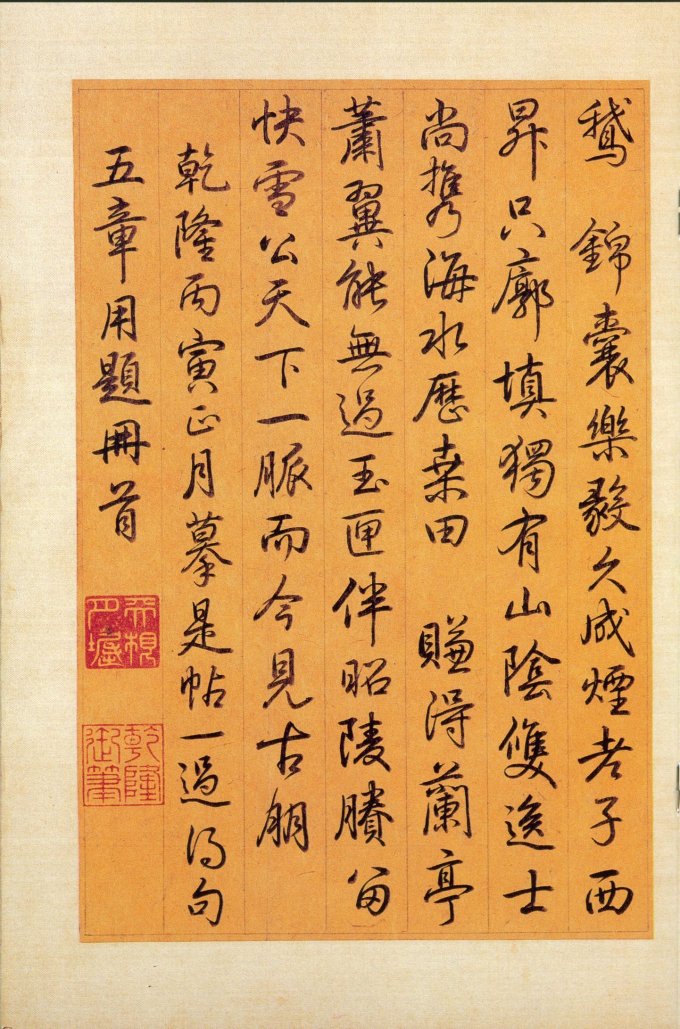 鵝　錦囊樂毅久成煙老子西
昇只廓填獨有山陰雙逸士
尚攜海水歷桒田　賺得蘭亭
蕭翼能無過玉匣伴昭陵賸留
快雪公天下一脈而今見古朋
乾隆丙寅正月摹是帖一過得句
五章用題冊首
乾隆
御筆